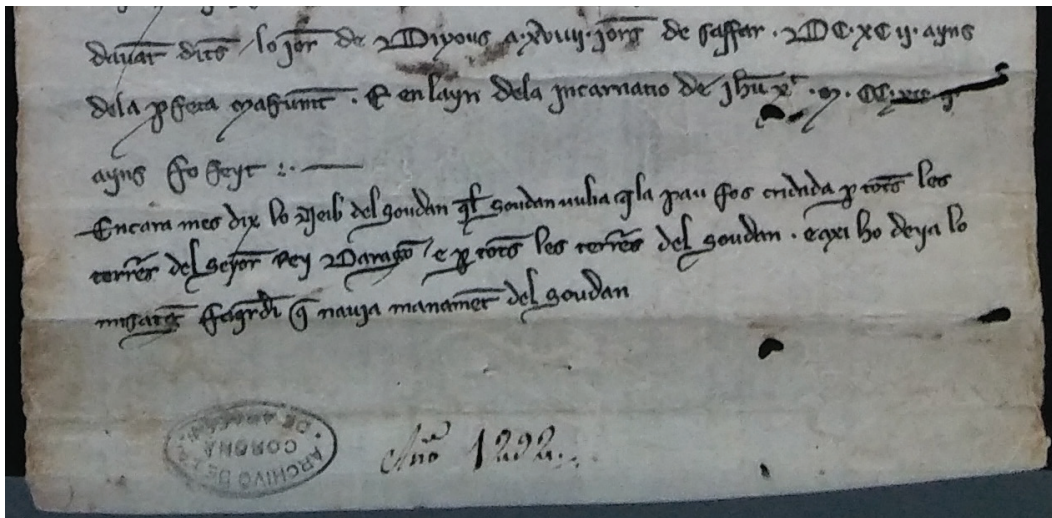 dauāt dits / lo jor de Dijous a xviiij jors de Saffar . DC.XC ij . ayns
dela pfeta Mafumet . E en layn dela Jncarnatio de jhū xp̄ . M . CC. xcc ij
ayns fo feyt :.
Encara mes dix lo del soudan q̄l soudan uulia q̄ la pau fos cridada p totes les
terres del Seyor Rey Darago / e p totes les terres del soudan . e axi ho deya lo
misatge q̄ nauja manament del soudan
ARCHIVO DE LA CORONA DE ARAGON
Año 1292.